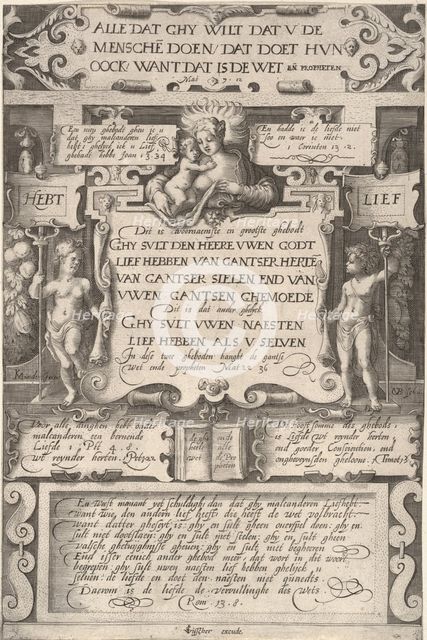 ALLE DAT GHY WILT DAT V DE
MENSCHĒ DOEN/ DAT DOET HVN
OOCK/ WANT DAT IS DE WET EÑ PROPHETEN
Mat 7. 12
Een nieu ghebodt gheve ic u
dat ghy malcanderen lief
hebt: ghelyck ick u Lief
ghehadt hebbe Joan 13.34
En hadde ic de liefde niet
soo en waer ic niet.
1 Corinten 13. 2.
HEBT
LIEF
Dit is t'voornaemste en grootste ghebodt
GHY SVLT DEN HEERE VWEN GODT
LIEF HEBBEN VAN GANTSER HERTĒ
VAN GANTSER SIELEN, END VAN
VWEN GANTSEN GHEMOEDE
Dit is dat ander ghelyck
GHY SVLT VWEN NAESTEN
LIEF HEBBEN ALS V SELVEN
In dese twee gheboden hanght de gantse
Wet ende propheten Mat 22 36
Voor alle dinghen hebt onder
malcanderen een bernende
Liefde 1 Pet. 4. 8.
wt reynder herten. 1 Pet 1.22
de ghe
heele
wet
ende
alle
de Pro
pheten
Hooftsomme des ghebods:
is Liefde wt reynder herten
end goeder Conscientien, end
ongheveynsden gheloove. 1. Timot 1.5
En weest niemant yet schuldigh: dan dat ghy malcanderen Liefhebt:
want wie den andern lief heeft die heeft de wet volbracht
want datter gheseyt is: ghy en sult gheen overspel doen: ghy en
sult niet dootslaen: ghy en sult niet stelen: ghy en sult gheen
valsche ghetuyghnisse gheven: ghy en sult niet begheeren
End isser eenich ander ghebodt meer, dat wort in dit woort
begrepen: ghy sult uwen naesten lief hebben ghelyck u
selven: de liefde en doet den naesten niet quaedts.
Daerom is de liefde de vervullinghe des wets.
Rom. 13. 8.
Visscher excude.